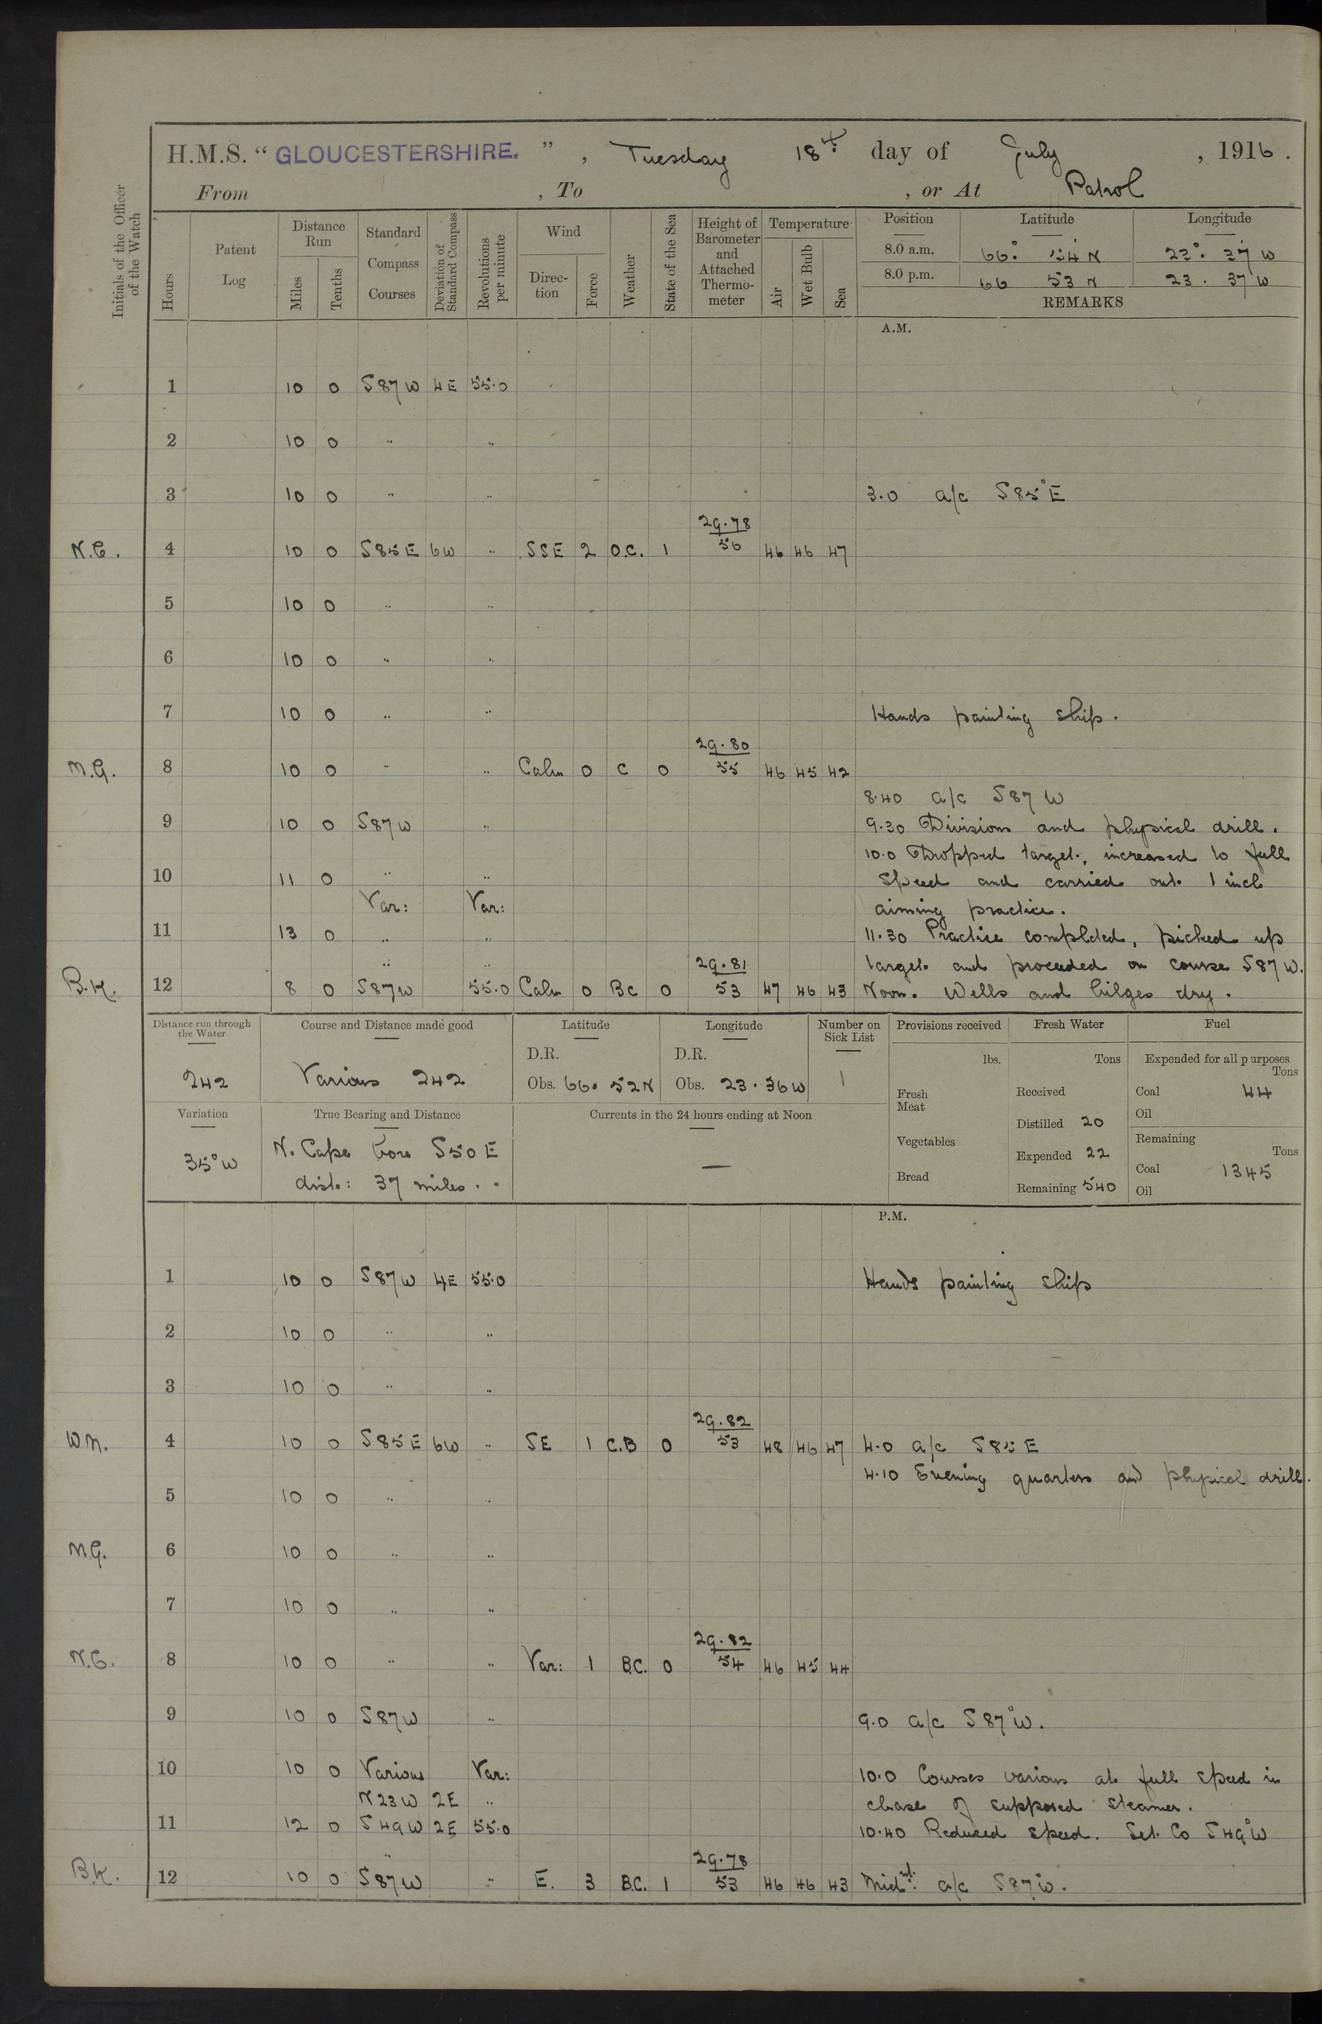 H.M.S. " GLOUCESTERSHIRE. " , Tuesday 18th day of July , 1916 .
From , To , or At Patrol
Initials of the Officer of the Watch
Hours
Patent Log
Distance Run
Miles
Tenths
Standard Compass Courses
Deviation of Standard Compass
Revolutions per minute
Wind
Direc-tion
Force
Weather
State of the Sea
Height of Barometer and Attached Thermo-meter
Temperature
Air
Wet Bulb
Sea
Position Latitude Longitude
8.0 a.m. 66° 54 N 23° 37 W
8.0 p.m. 66 53 N 23 . 37 W
REMARKS
A.M.
1 10 0 S87W 4E 55.0
2 10 0 " "
3 10 0 " " 3.0 a/c S85°E
N.C. 4 10 0 S85E 6W " SSE 2 O.C. 1 29.78 56 46 46 47
5 10 0 " "
6 10 0 " "
7 10 0 " " Hands painting ship.
M.G. 8 10 0 " " Calm 0 C 0 29.80 55 46 45 42
8.40 a/c S87 W
9 10 0 S87W " 9.30 Divisions and physical drill.
10.0 Dropped target, increased to full
10 11 0 " " speed and carried out 1 inch
Var: Var: aiming practice.
11 13 0 " " 11.30 Practice completed, picked up
" " target and proceeded on course S87W.
B.K. 12 8 0 S87W 55.0 Calm 0 Bc 0 29.81 53 47 46 43 Noon. Wells and bilges dry.
Distance run through the Water
242
Course and Distance made good
Various 242
Latitude
D.R.
Obs. 66. 52N
Longitude
D.R.
Obs. 23.36W
Number on Sick List
1
Provisions received
lbs.
Fresh Meat
Vegetables
Bread
Fresh Water
Tons
Received
Distilled 20
Expended 22
Remaining 540
Fuel
Expended for all purposes
Tons
Coal 44
Oil
Remaining
Tons
Coal 1345
Oil
Variation
35°W
True Bearing and Distance
N. Cape bore S50E
dist: 37 miles.
Currents in the 24 hours ending at Noon
—
P.M.
1 10 0 S87W 4E 55.0 Hands painting ship
2 10 0 " "
3 10 0 " "
W.M. 4 10 0 S85E 6W " SE 1 C.B 0 29.82 53 48 46 47 4.0 a/c S85E
4.10 Evening quarters and physical drill.
5 10 0 " "
M.G. 6 10 0 " "
7 10 0 " "
N.C. 8 10 0 " " Var: 1 B.C. 0 29.82 54 46 45 44
9 10 0 S87W " 9.0 a/c S87°W.
10 10 0 Various Var: 10.0 Courses various at full speed in
N23W 2E " chase of supposed steamer.
11 12 0 S49W 2E 55.0 10.40 Reduced speed. Set Co S49°W
B.K. 12 10 0 S87W " E. 3 B.C. 1 29.78 53 46 46 43 Midnt. a/c S87°W.